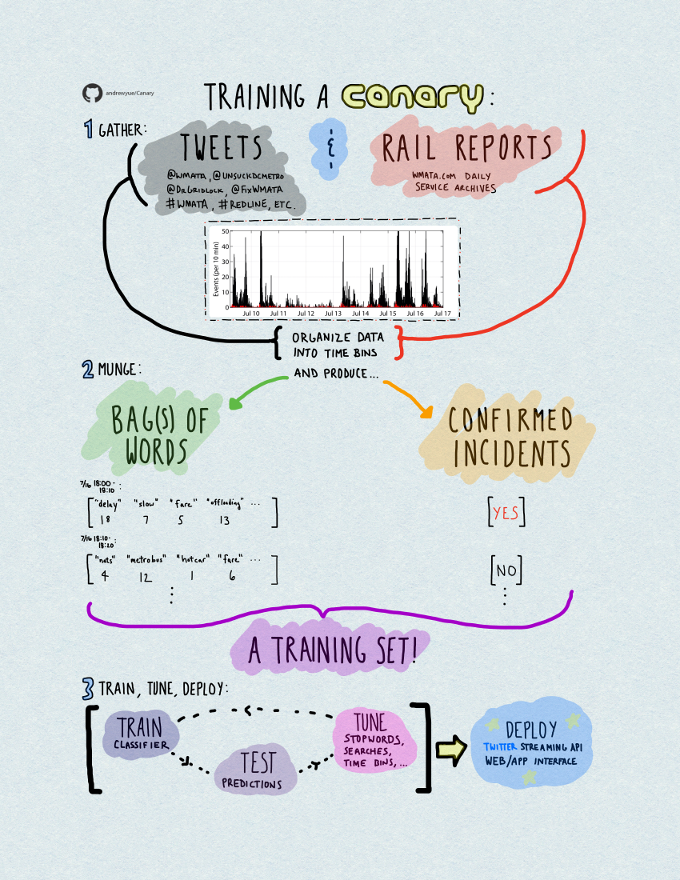 andrewyue/Canary
TRAINING A canary:
1 GATHER:
TWEETS
@WMATA, @UNSUCKDCMETRO
@DRGRIDLOCK, @FIXWMATA
#WMATA, #REDLINE, ETC.
&
RAIL REPORTS
WMATA.COM DAILY
SERVICE ARCHIVES
Events (per 10 min)
50
40
30
20
10
0
Jul 10 Jul 11 Jul 12 Jul 13 Jul 14 Jul 15 Jul 16 Jul 17
ORGANIZE DATA
INTO TIME BINS
AND PRODUCE...
2 MUNGE:
BAG(S) OF
WORDS
CONFIRMED
INCIDENTS
7/16 18:00-
18:10:
"delay" "slow" "fare" "offloading" ...
18 7 5 13
[YES]
7/16 18:10-
18:20:
"nats" "metrobus" "hotcar" "fare" ...
4 12 1 6
[NO]
A TRAINING SET!
3 TRAIN, TUNE, DEPLOY:
TRAIN
CLASSIFIER
TEST
PREDICTIONS
TUNE
STOPWORDS,
SEARCHES,
TIME BINS,...
DEPLOY
TWITTER STREAMING API
WEB/APP INTERFACE